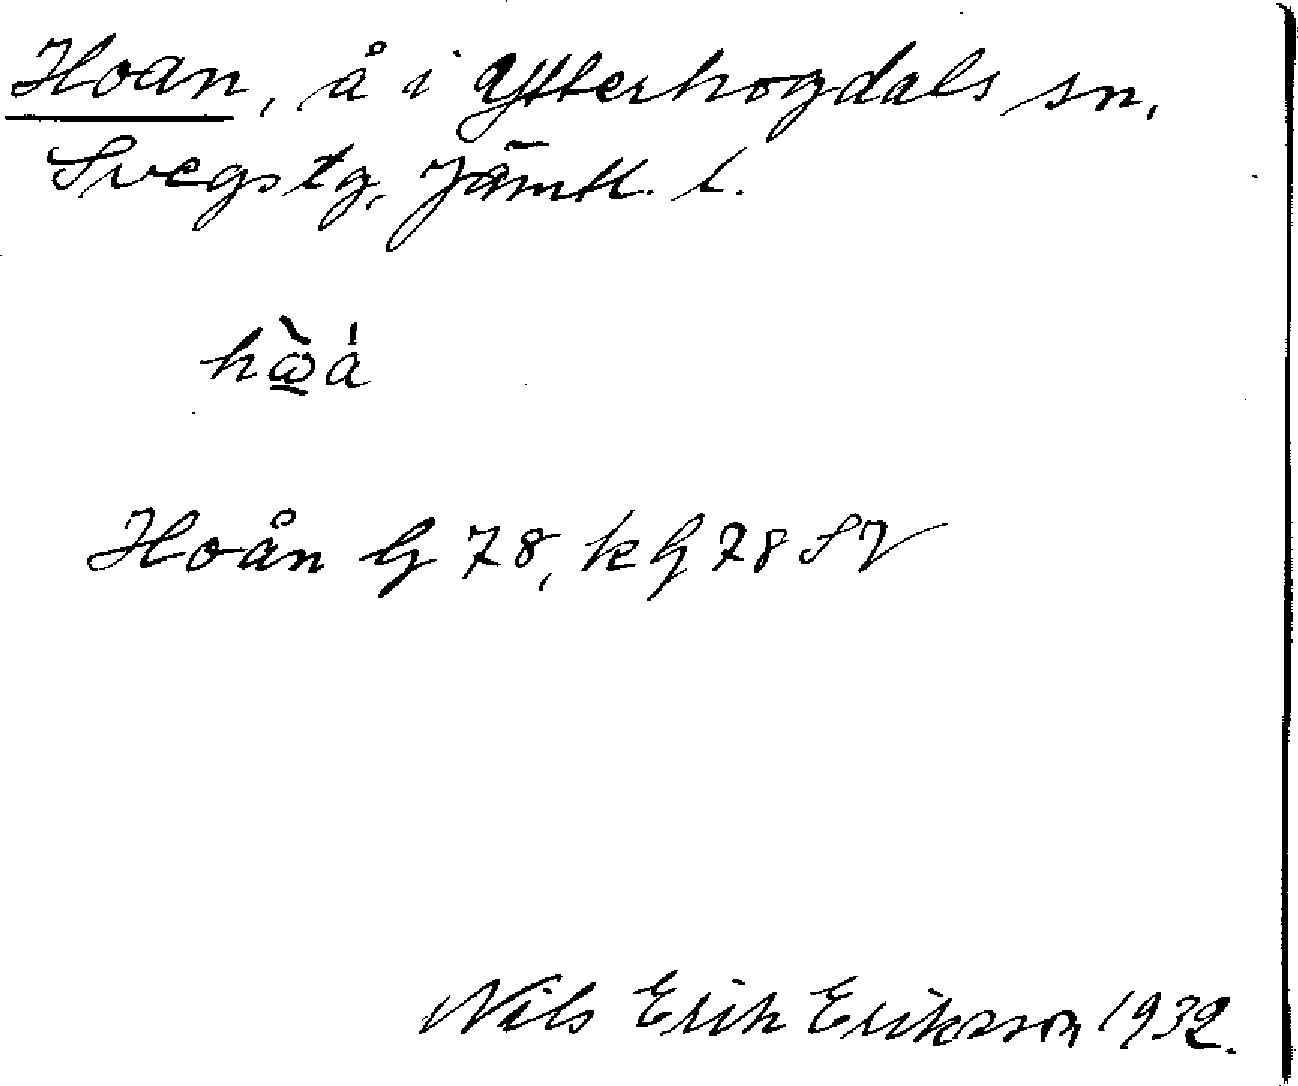 Hoan, å i Ytterhogdals sn,
Svegs tg, Jämtl. l.
hὼ̠á
Hoån G 78, k G 78 SV
Nils Erik Eriksson 1932.